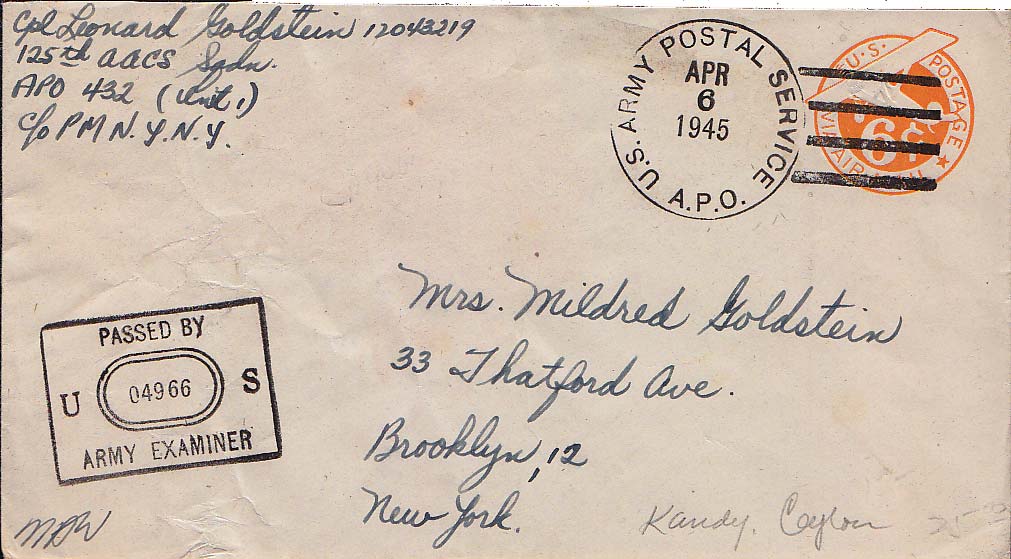 Cpl Leonard Goldstein 12043219
125th AACS Sqdn.
APO 432 (Unit 1)
c/o PM N.Y. N.Y.
U.S. ARMY POSTAL SERVICE
APR
6
1945
A.P.O.
U.S. POSTAGE
6¢
VIA AIR MAIL
Mrs. Mildred Goldstein
33 Thatford Ave.
Brooklyn, 12
New York.
PASSED BY
U 04966 S
ARMY EXAMINER
Kandy, Ceylon